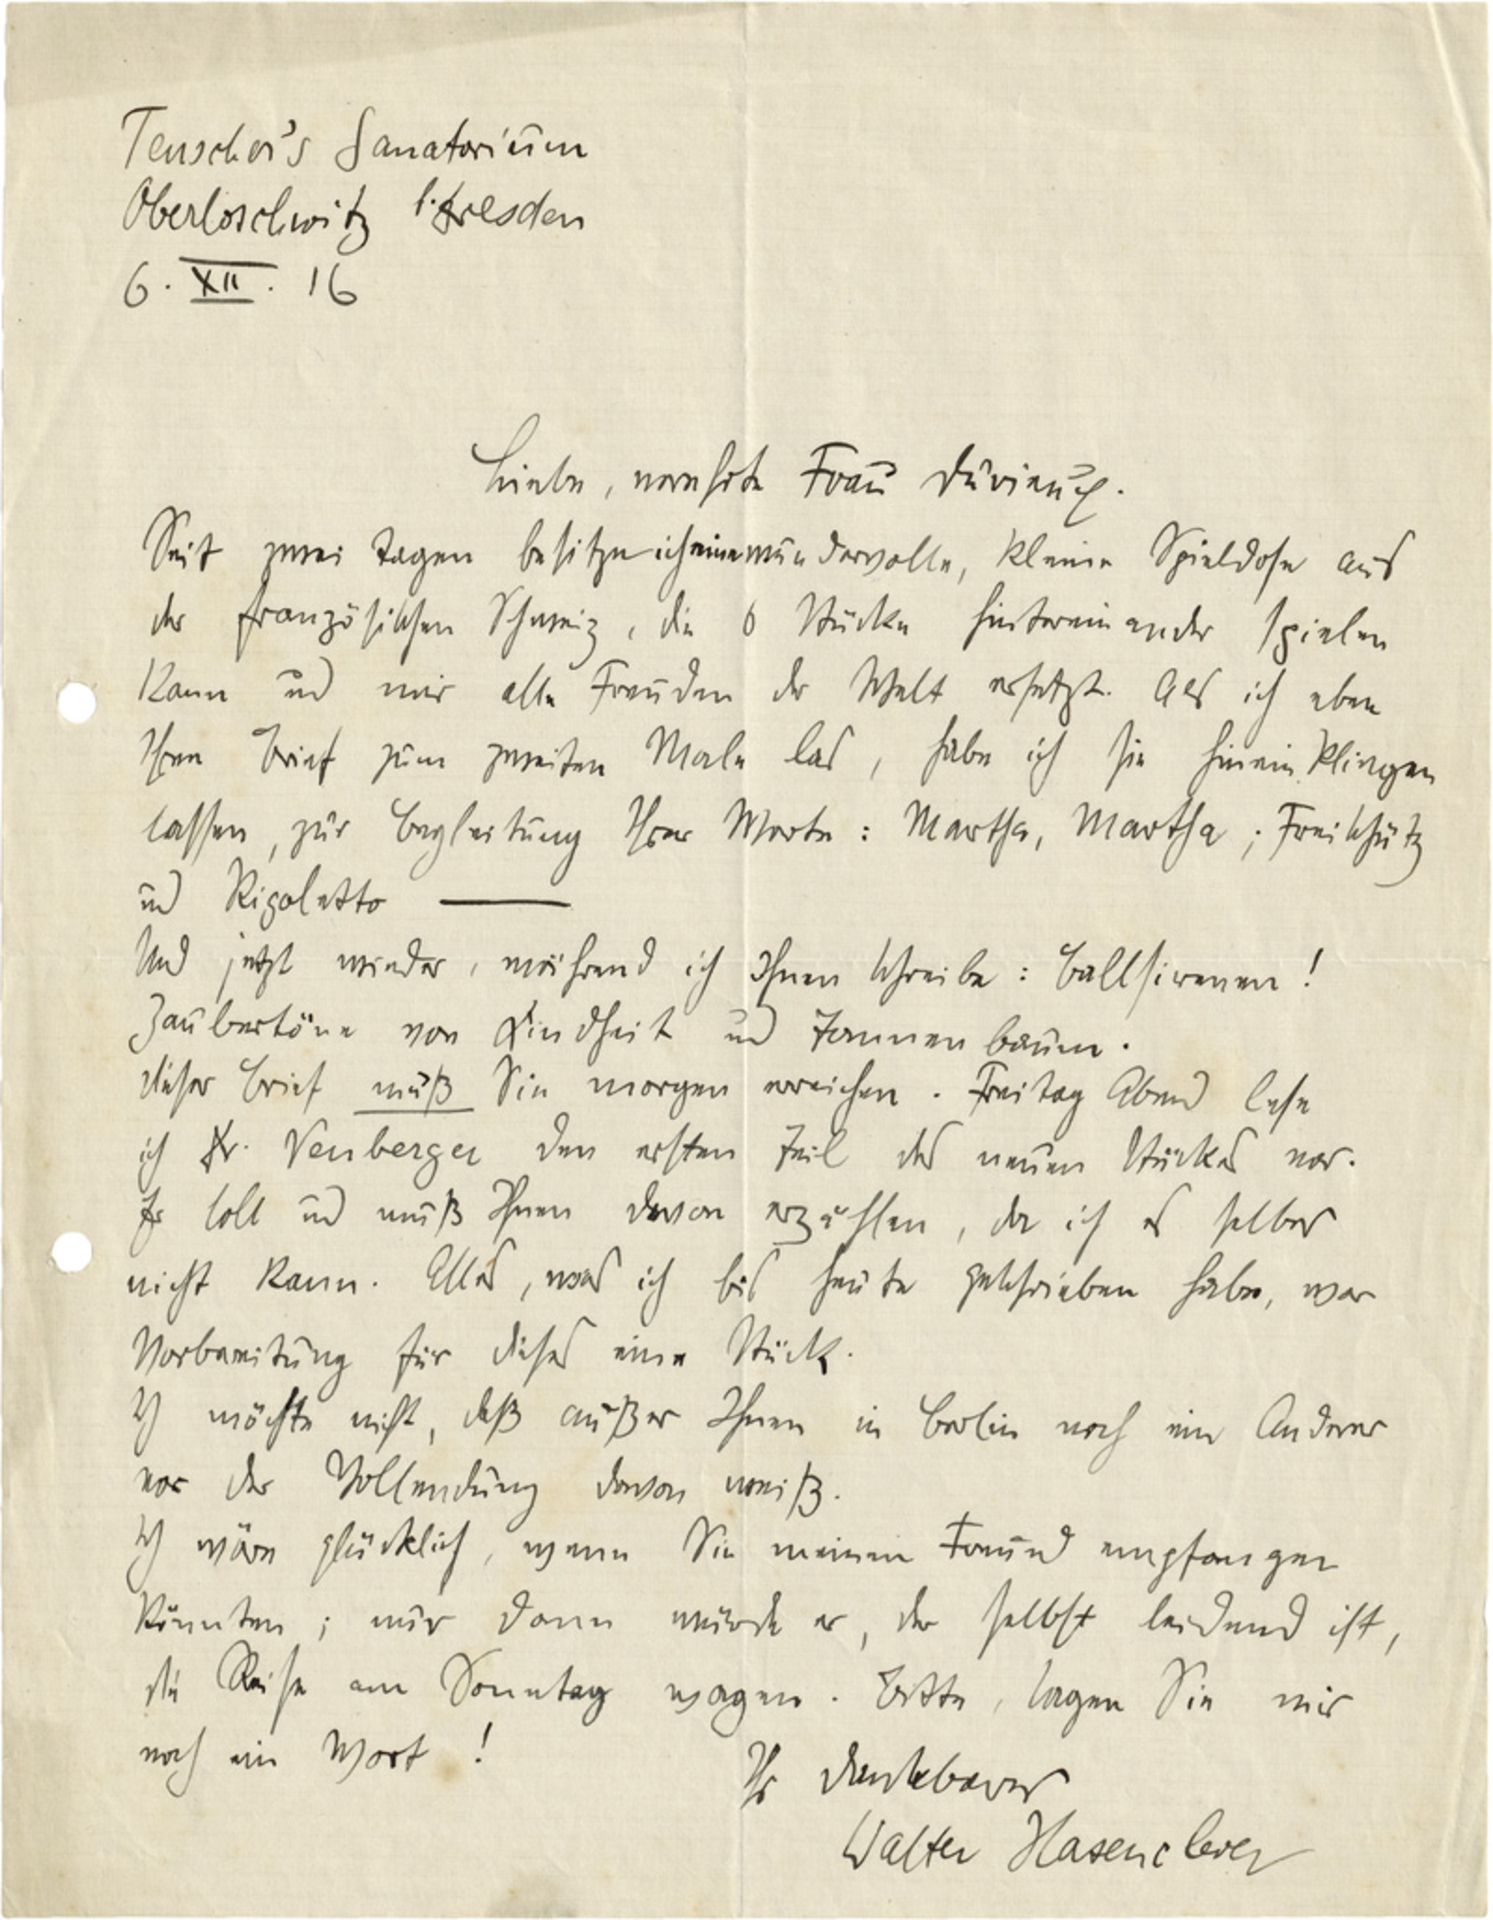 Teuscher's Sanatorium
Oberloschwitz b. Dresden
6. XII. 16
Liebe, verehrte Frau Durieux.
Seit zwei Tagen besitze ich eine wundervolle, kleine Spieldose aus
der französischen Schweiz, die 6 Stücke hintereinander spielen
kann und mir alle Freuden der Welt ersetzt. Als ich eben
Ihren Brief zum zweiten Male las, habe ich sie hineinklingen
lassen, zur Begleitung Ihrer Worte: Martha, Martha; Freischütz
und Rigoletto ———
Und jetzt wieder, während ich Ihnen schreibe: Ballsirenen!
Zaubertöne von Kindheit und Tannenbaum.
Dieser Brief muß Sie morgen erreichen. Freitag Abend lese
ich Dr. Neuberger den ersten Teil des neuen Stückes vor.
Er soll und muß Ihnen davon erzählen, da ich es selber
nicht kann. Alles, was ich bis heute geschrieben habe, war
Vorbereitung für dieses eine Stück.
Ich möchte nicht, daß außer Ihnen in Berlin noch ein Anderer
vor der Vollendung davon weiß.
Ich wäre glücklich, wenn Sie meinen Freund empfangen
könnten; nur dann würde er, der selbst leidend ist,
die Reise am Sonntag wagen. Bitte, sagen Sie mir
noch ein Wort!
Ihr dankbarer
Walter Hasenclever